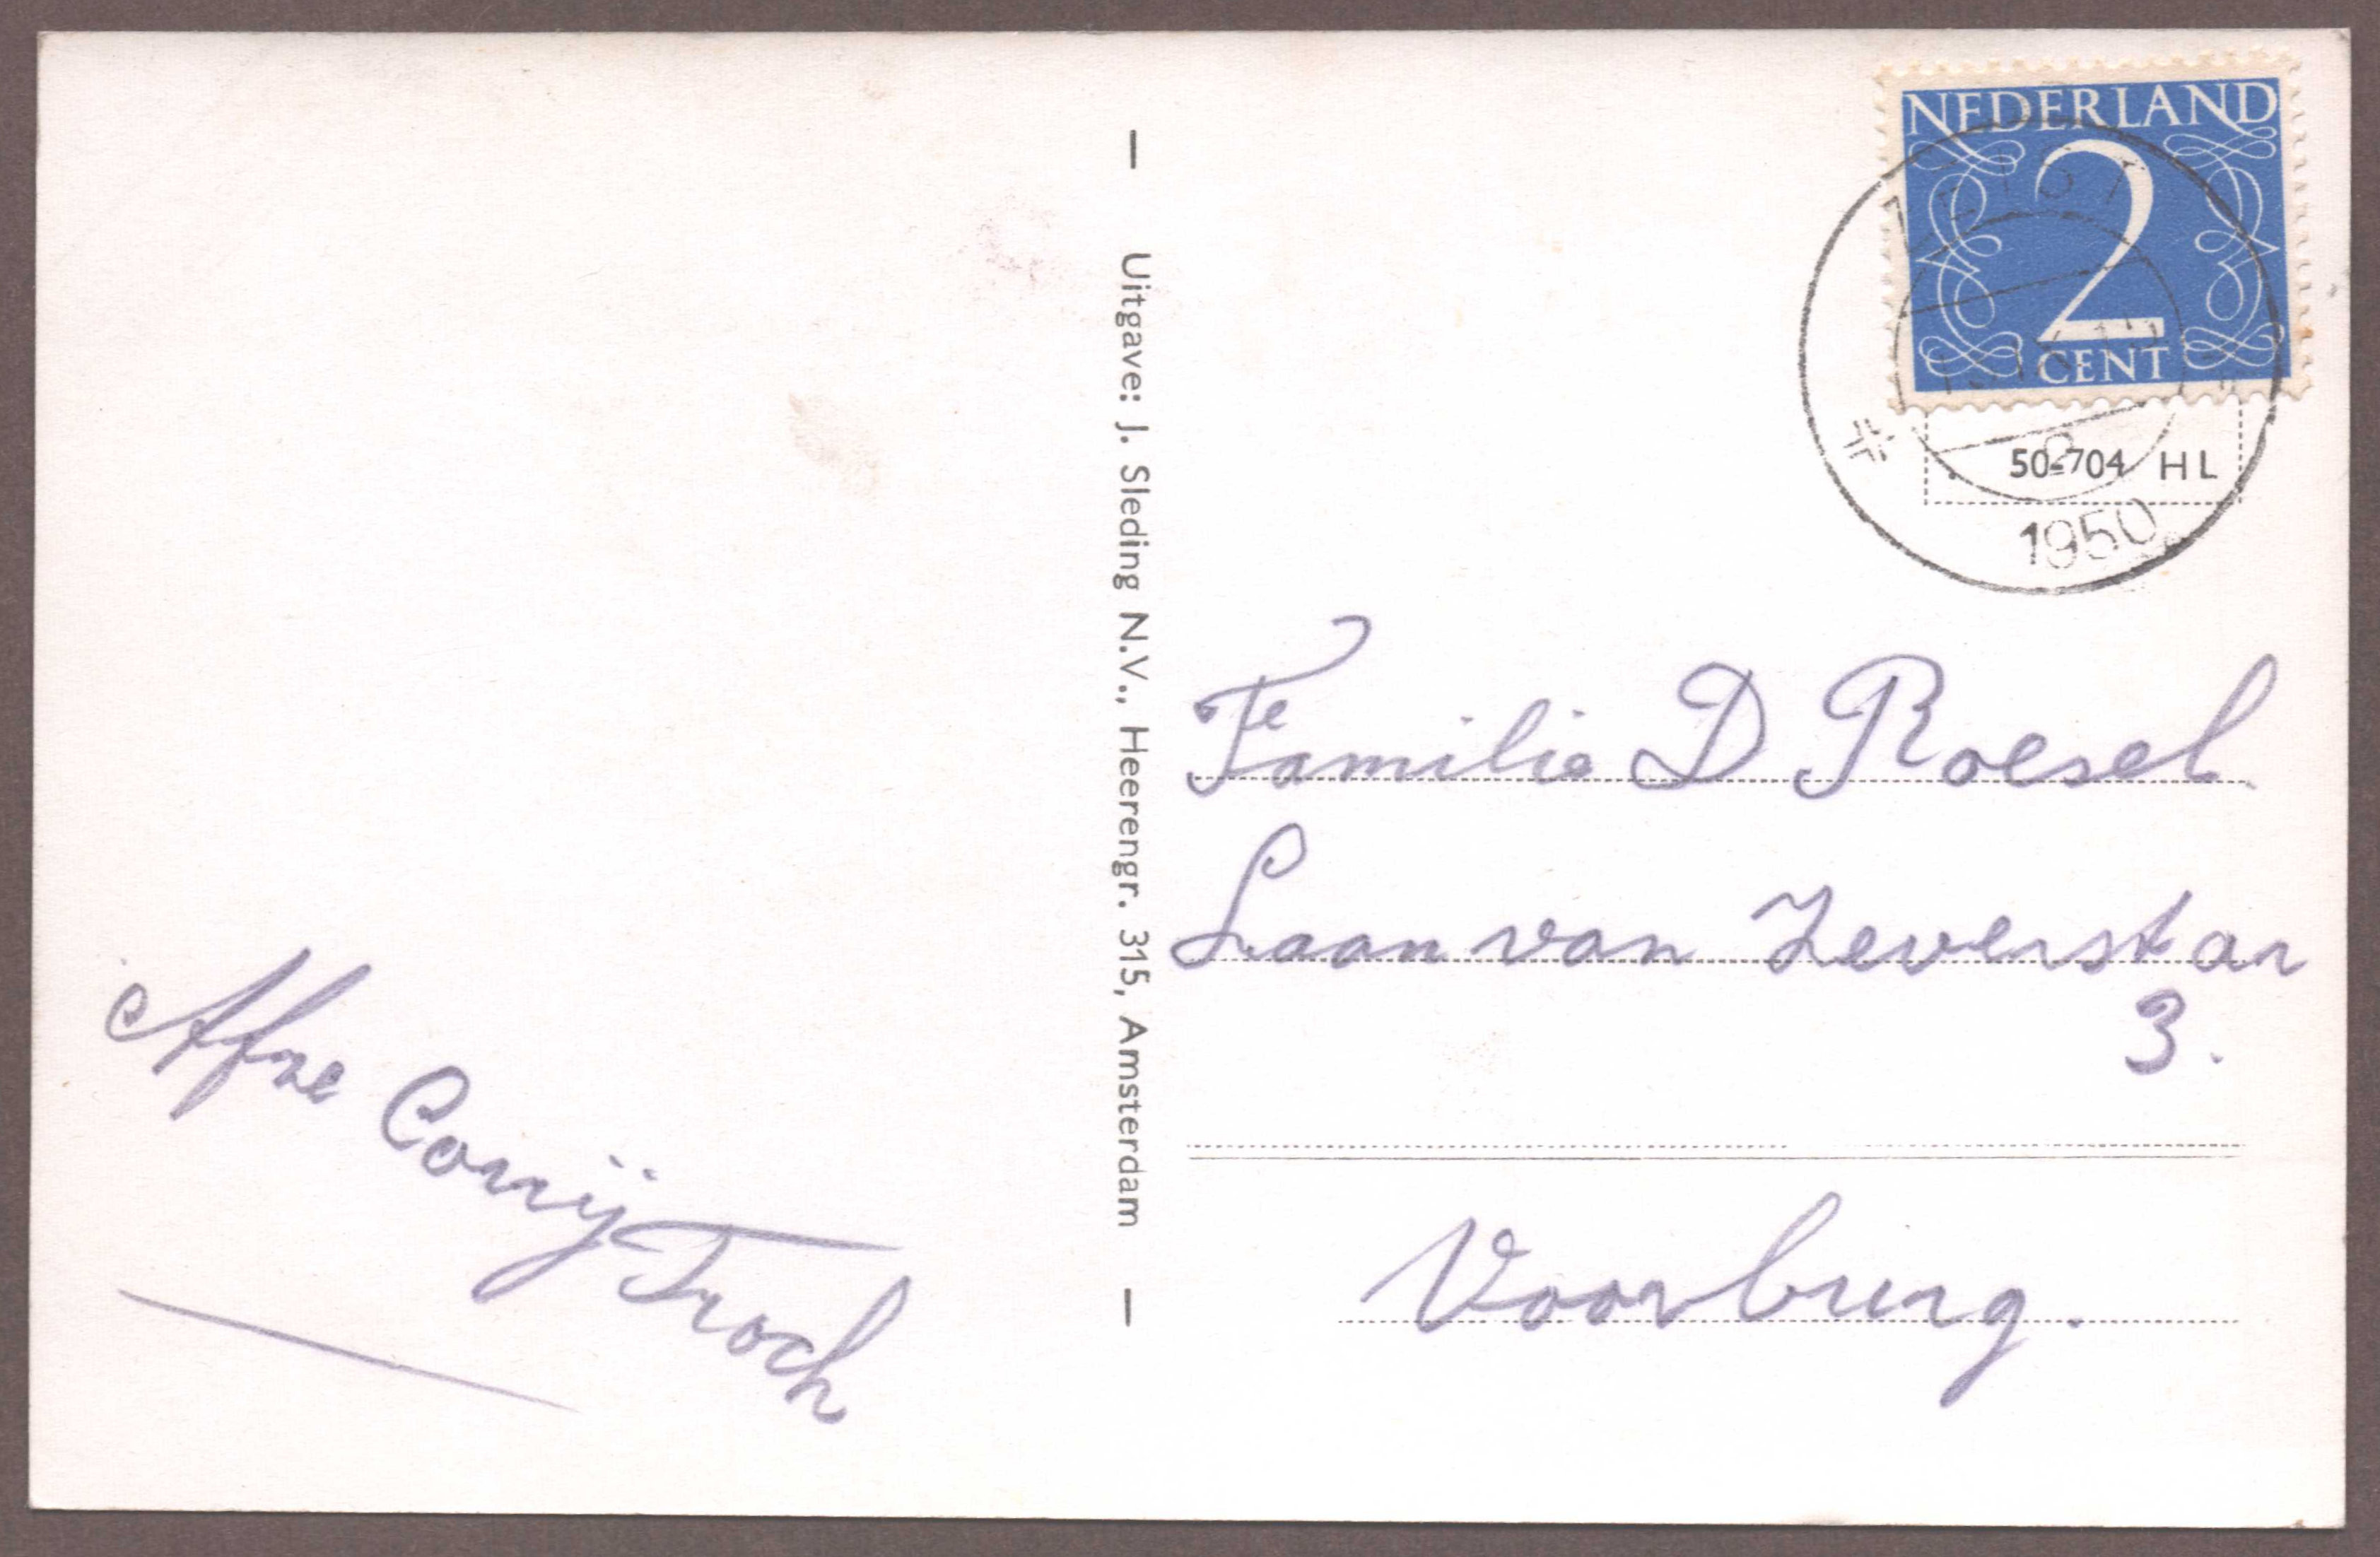 NEDERLAND
2
CENT
ZEIST
1950
50-704 HL
Uitgave: J. Sleding N.V., Heerengr. 315, Amsterdam
Familie D Roesel
Laan van Zeverstar
3.
Voorburg.
Afze Corrij
Troch